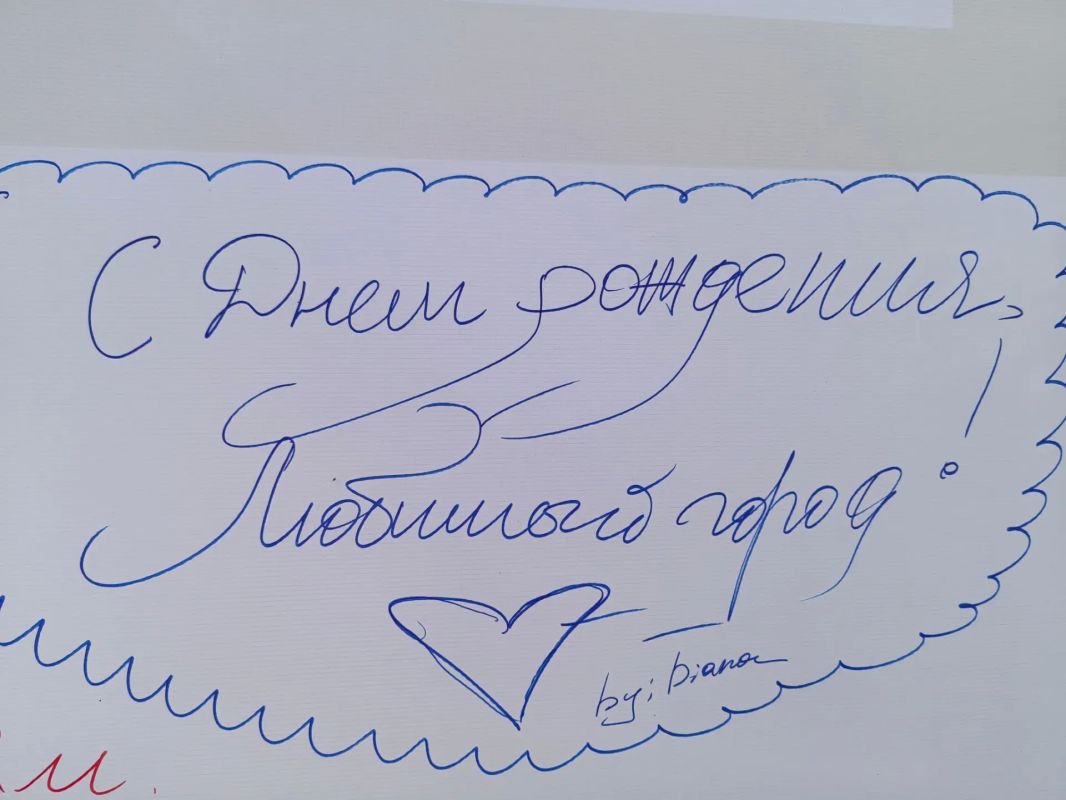 С Днем рождения,
Любимый город!
by: Diana
м.